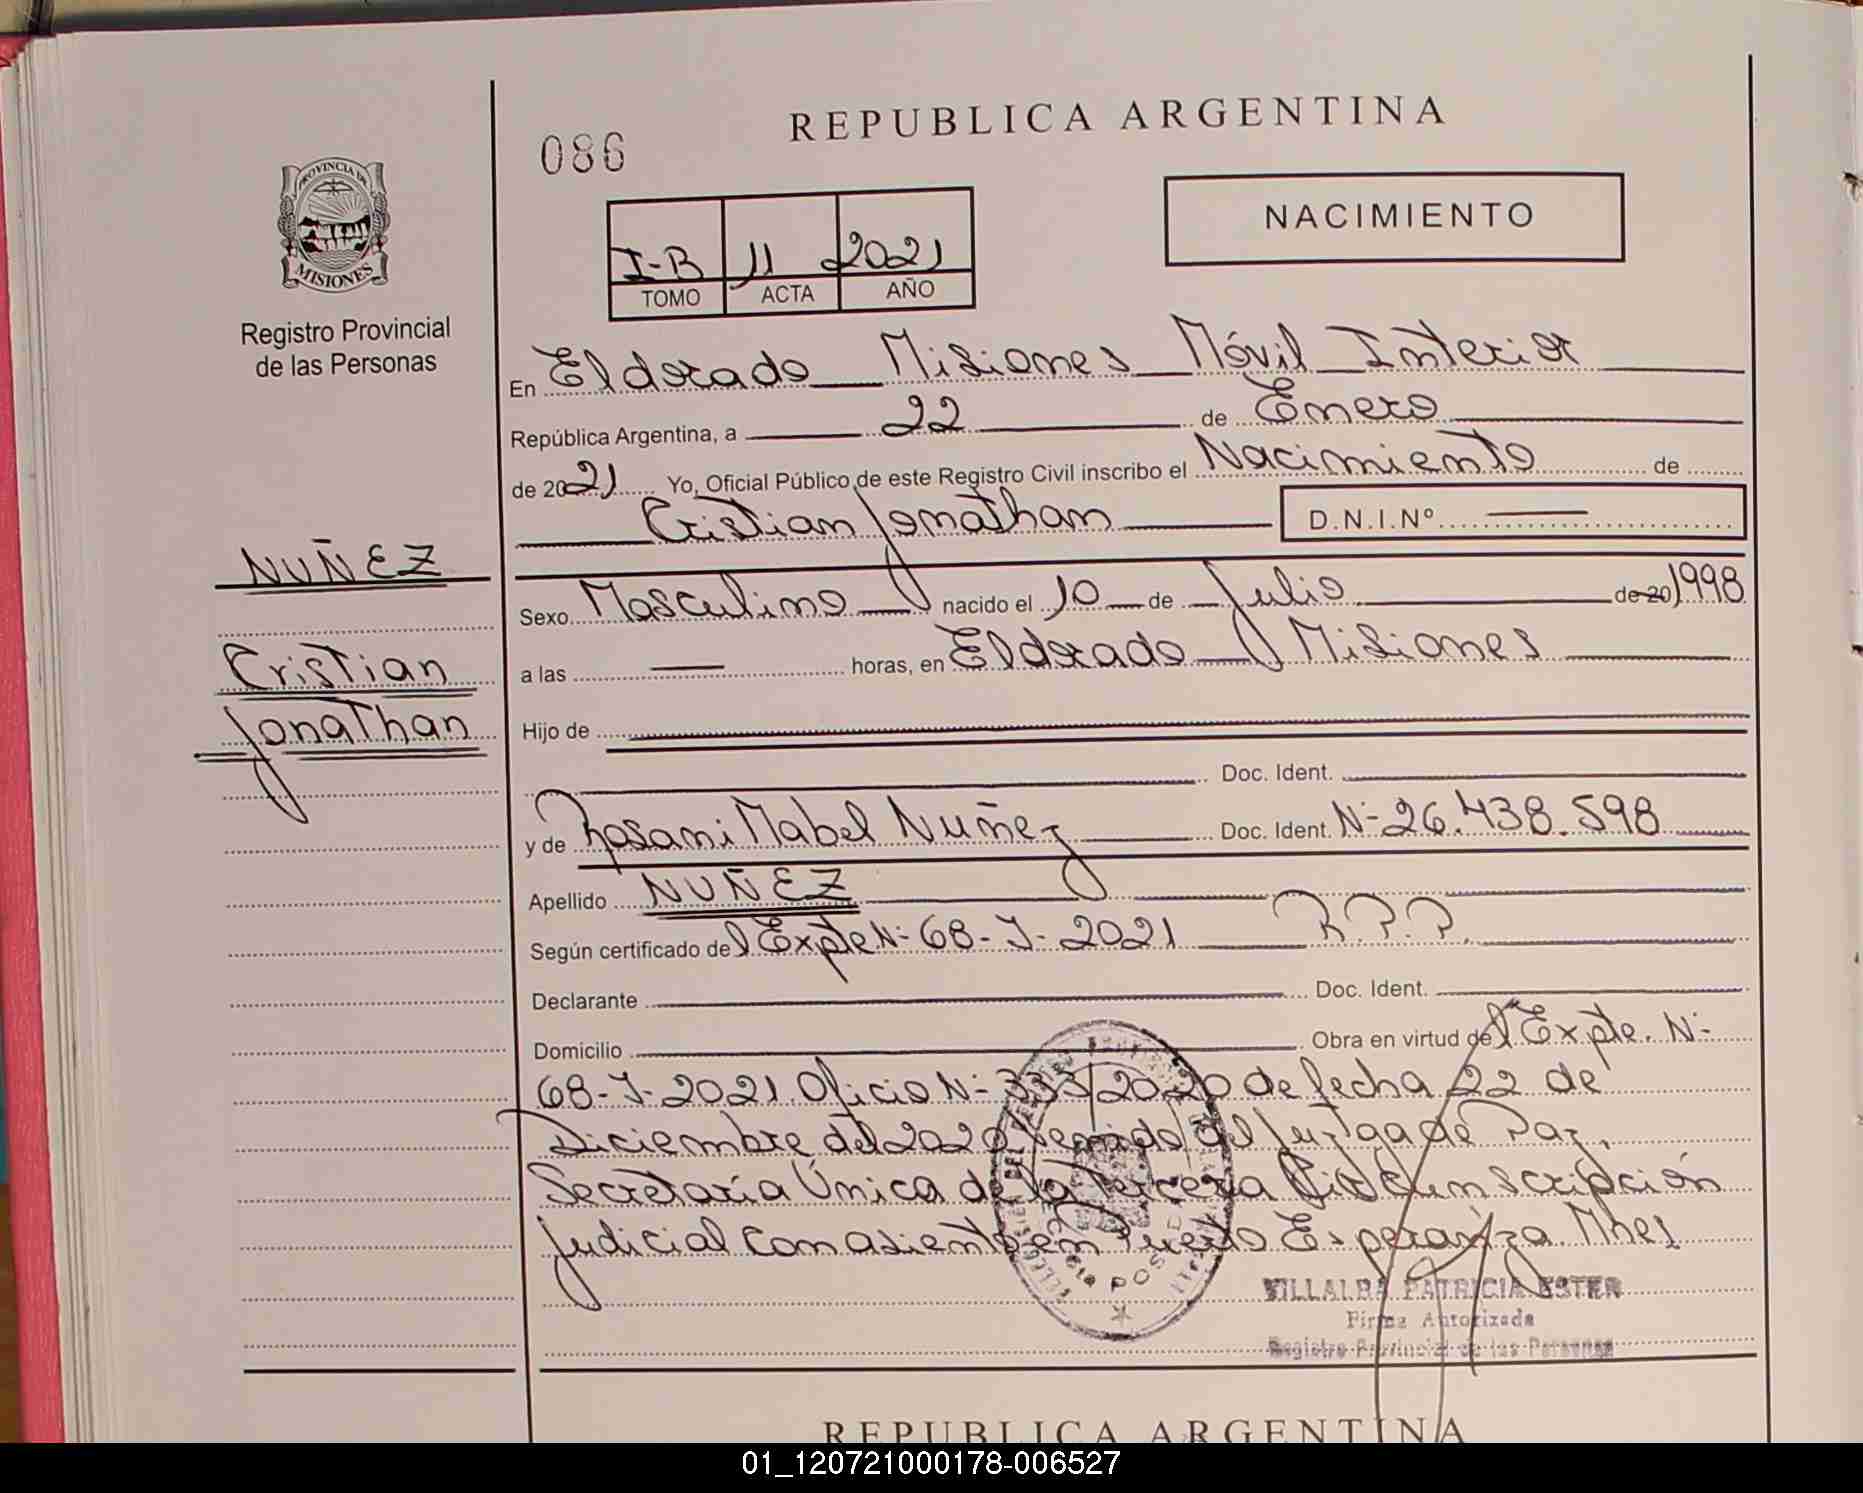 REPUBLICA ARGENTINA
086
NACIMIENTO
PROVINCIA DE
MISIONES
Registro Provincial
de las Personas
I-B 11 2021
TOMO ACTA AÑO
En Eldorado Misiones Móvil Interior
República Argentina, a 22 de Enero
de 2021 Yo, Oficial Público de este Registro Civil inscribo el Nacimiento de
Cristian Jonathan D.N.I.Nº
NUÑEZ
Cristian
Jonathan
Sexo Masculino nacido el 10 de Julio de 20 1998
a las horas, en Eldorado Misiones
Hijo de
Doc. Ident.
y de Rosani Mabel Nuñez Doc. Ident. N- 26.438.598
Apellido NUÑEZ
Según certificado del Expte N- 68-J-2021 R.P.P.
Declarante Doc. Ident.
Domicilio Obra en virtud del Expte. N-
68-J-2021 Oficio N- 333/2020 de fecha 22 de
Diciembre del 2020 del Juzgado de Paz,
Secretaría Única de la Tercera Circunscripción
Judicial con asiento en Puerto Esperanza Mnes
VILLALBA PATRICIA ESTER
Firma Autorizada
Registro Provincial de las Personas
REPUBLICA ARGENTINA
01_120721000178-006527